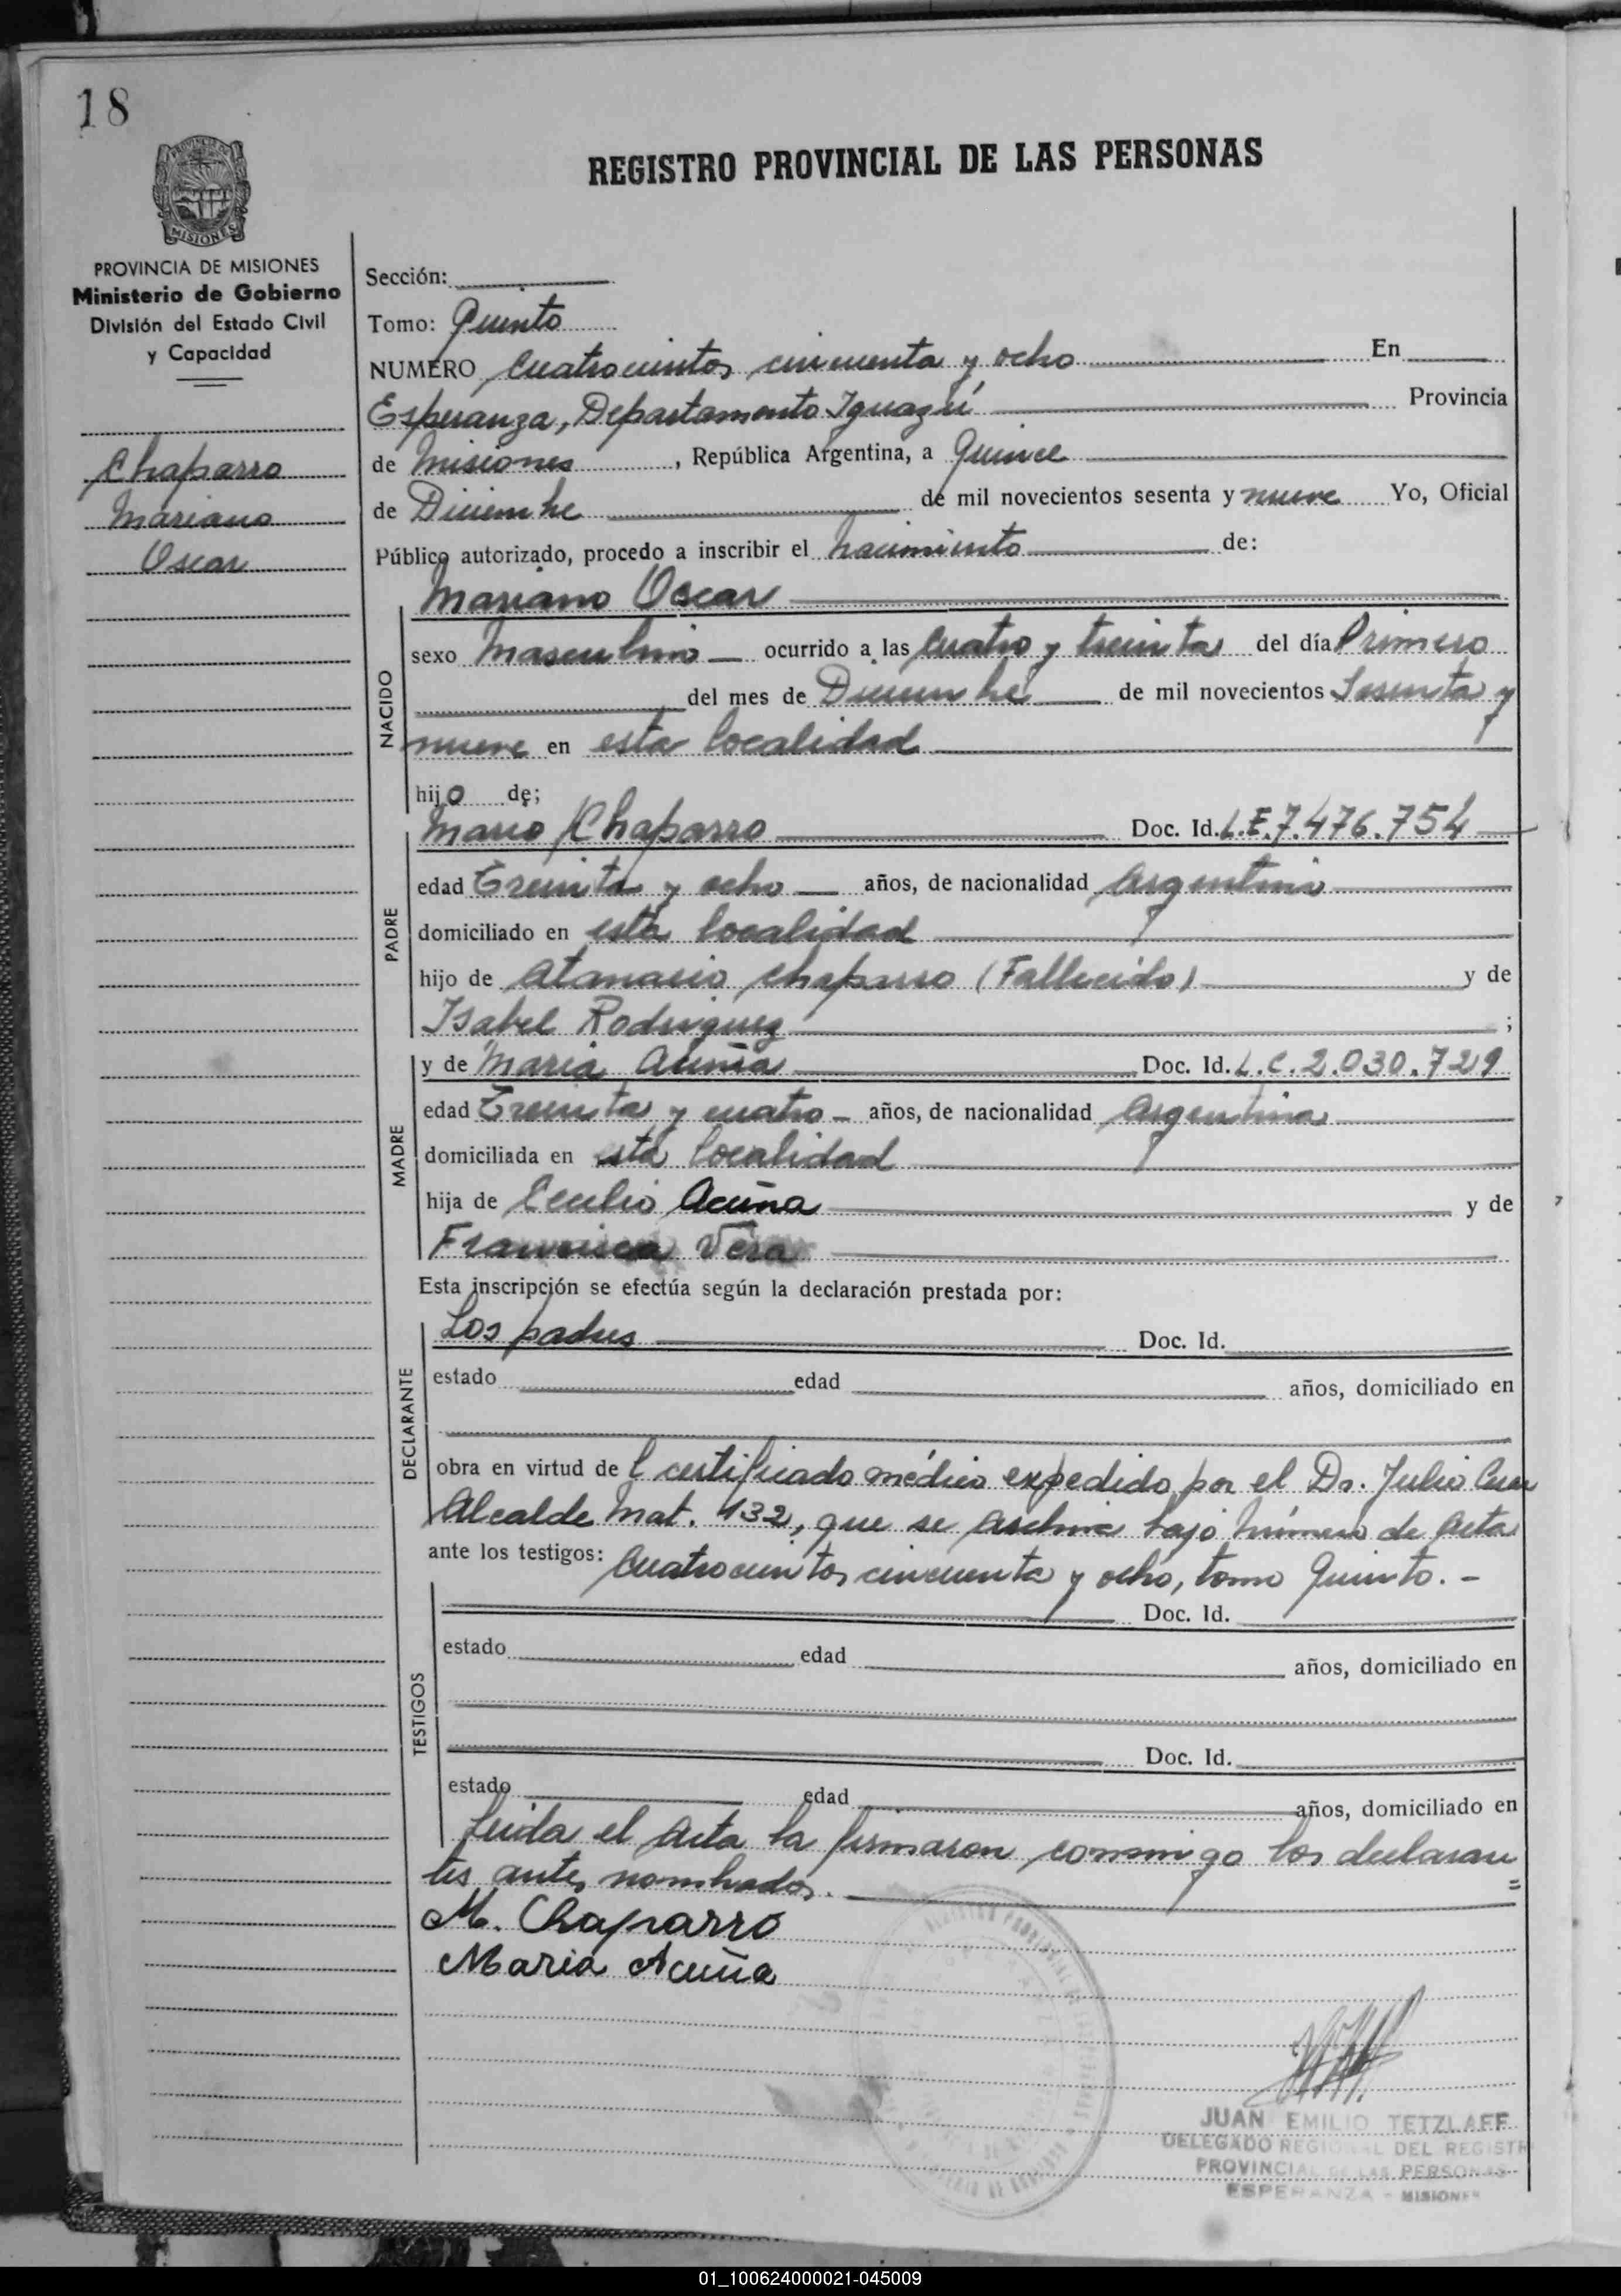 18
REGISTRO PROVINCIAL DE LAS PERSONAS
MISIONES
PROVINCIA DE MISIONES
Ministerio de Gobierno
División del Estado Civil
y Capacidad
Chaparro
Mariano
Oscar
Sección:
Tomo: Quinto
NUMERO Cuatrocientos cincuenta y ocho En
Esperanza, Departamento Iguazú Provincia
de Misiones, República Argentina, a Quince
de Diciembre de mil novecientos sesenta y nueve Yo, Oficial
Público autorizado, procedo a inscribir el nacimiento de:
Mariano Oscar
NACIDO
sexo Masculino ocurrido a las Cuatro y treinta del día Primero
del mes de Diciembre de mil novecientos Sesenta y
nueve en esta localidad
hijo de;
PADRE
Mario Chaparro Doc. Id. L.E. 7.476.754
edad Treinta y ocho años, de nacionalidad Argentino
domiciliado en esta localidad
hijo de Atanacio Chaparro (Fallecido) y de
Isabel Rodriguez ;
MADRE
y de Maria Acuña Doc. Id. L.C. 2.030.729
edad Treinta y cuatro años, de nacionalidad Argentina
domiciliada en esta localidad
hija de Cecilio Acuña y de
Francisca Vera
Esta inscripción se efectúa según la declaración prestada por:
DECLARANTE
Los padres Doc. Id.
estado edad años, domiciliado en
obra en virtud de l certificado médico expedido por el Dr. Julio Cesar
Alcalde Mat. 132, que se archiva bajo número de Acta
ante los testigos: Cuatrocientos cincuenta y ocho, tomo Quinto. -
TESTIGOS
Doc. Id.
estado edad años, domiciliado en
Doc. Id.
estado edad años, domiciliado en
Leida el Acta la firmaron conmigo los declaran
tes antes nombrados.
M. Chaparro
Maria Acuña
JUAN EMILIO TETZLAFF
DELEGADO REGIONAL DEL REGISTR
PROVINCIAL DE LAS PERSONAS
ESPERANZA - MISIONES
01_100624000021-045009